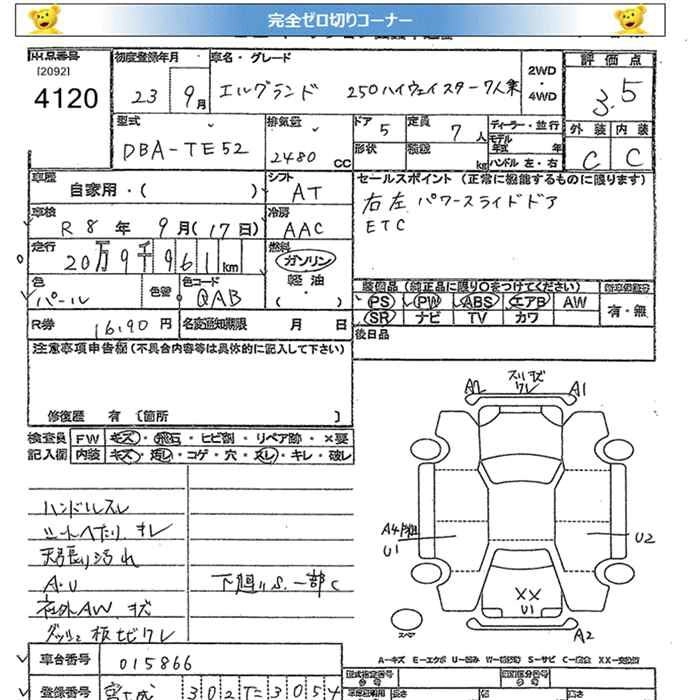 完全ゼロ切りコーナー
出品番号 初度登録年月 車名・グレード 2WD・4WD 評価点
[2092]
4120 23 9月 エルグランド 250ハイウェイスター7人乗 3.5
型式 排気量 ドア 5 定員 7人 ディーラー・並行 外装 内装
DBA-TE52 2480cc 形状 積載 kg モデル年式 年 ハンドル 左・右 C C
車歴 自家用・( ) シフト AT セールスポイント(正常に機能するものに限ります)
車検 R8年 9月(17日) 冷房 AAC 右左パワースライドドア
ETC
走行 20万9千961km 燃料 ガソリン 軽油 ( )
色 パール 色替 色コード QAB
装備品(純正品に限り○をつけてください)
PS PW ABS エアB AW 有・無
SR ナビ TV カワ
R券 16,90円 名変通知期限 月 日 後日品
注意事項申告欄(不具合内容等は具体的に記入して下さい)
修復歴 有 [箇所 ]
検査員 FW キズ・飛石・ヒビ割・リペア跡・×要
記入欄 内装 キズ・汚レ・コゲ・穴・スレ・キレ・破レ
ハンドルスレ
シートヘたり、キレ
天張り汚れ
A・U
社外AW、キズ
下廻りS、一部C
A2 ワレ A1
A4
U1
U2
XX
U1
A2
スペア
A-キズ E-エクボ U-凹み W-補修跡 S-サビ C-腐食 XX-交換済
車台番号 015866
登録番号 302 3054